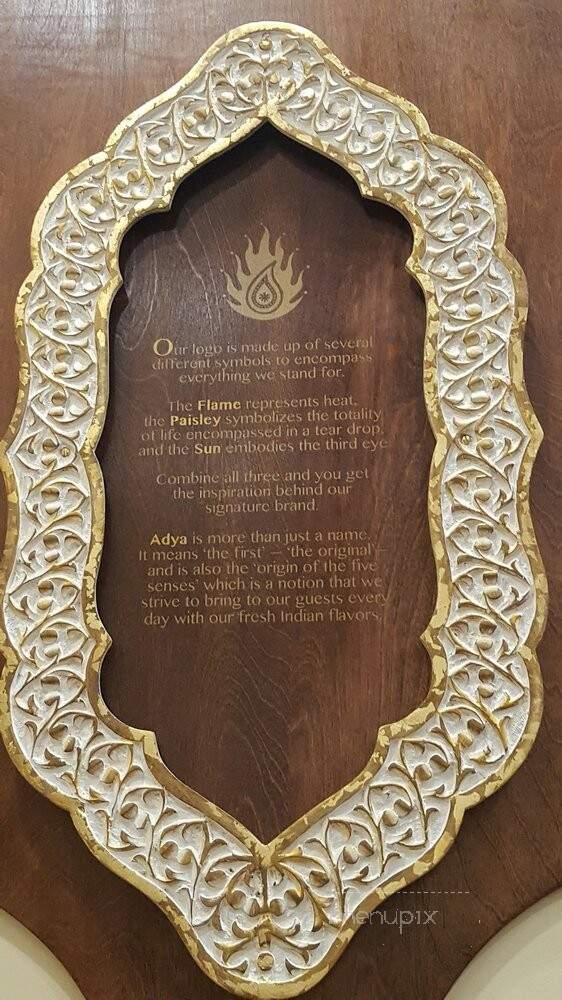 Our logo is made up of several
different symbols to encompass
everything we stand for.
The Flame represents heat,
the Paisley symbolizes the totality
of life encompassed in a tear drop,
and the Sun embodies the third eye
Combine all three and you get
the inspiration behind our
signature brand.
Adya is more than just a name.
It means 'the first' – 'the original'–
and is also the 'origin of the five
senses' which is a notion that we
strive to bring to our guests every
day with our fresh Indian flavors.
menupix